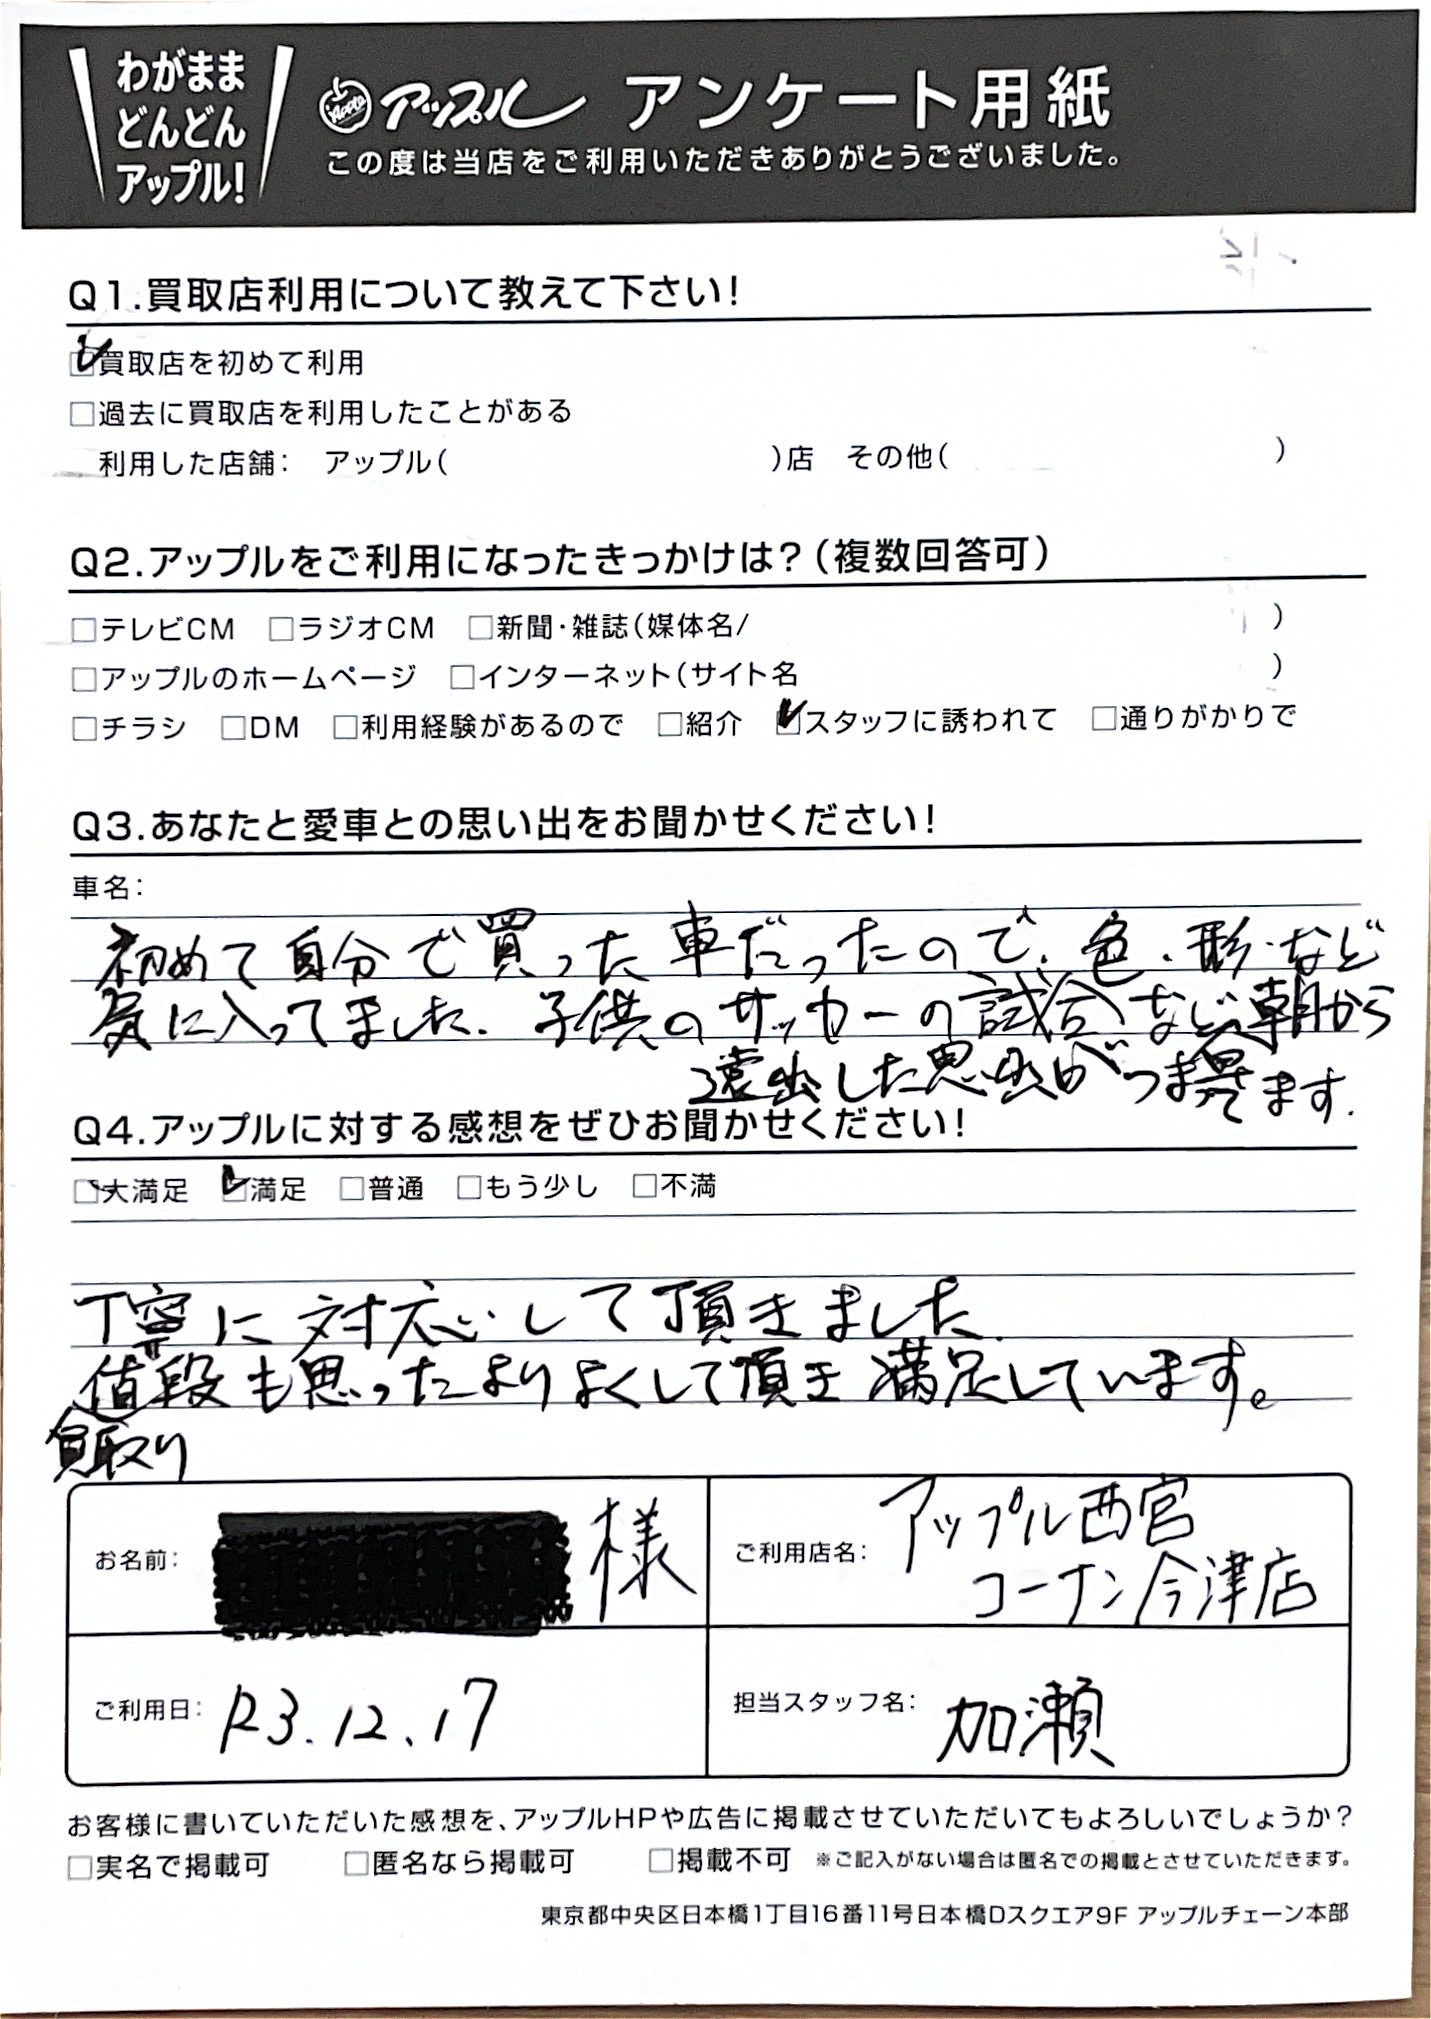 わがまま
どんどん
アップル!
アップル アンケート用紙
この度は当店をご利用いただきありがとうございました。
Q1.買取店利用について教えて下さい!
☑買取店を初めて利用
□過去に買取店を利用したことがある
利用した店舗: アップル( )店 その他( )
Q2.アップルをご利用になったきっかけは?(複数回答可)
□テレビCM □ラジオCM □新聞・雑誌(媒体名/ )
□アップルのホームページ □インターネット(サイト名 )
□チラシ □DM □利用経験があるので □紹介 ☑スタッフに誘われて □通りがかりで
Q3.あなたと愛車との思い出をお聞かせください!
車名:
初めて自分で買った車だったので、色、形など
気に入ってました。子供のサッカーの試合など朝から
遠出した思い出がつまってます.
Q4.アップルに対する感想をぜひお聞かせください!
□大満足 ☑満足 □普通 □もう少し □不満
丁寧に対応して頂きました.
値段も思ったよりよくして頂き満足しています。
買取り
お名前: 様
ご利用店名: アップル西宮
コーナン今津店
ご利用日: R3.12.17
担当スタッフ名: 加瀬
お客様に書いていただいた感想を、アップルHPや広告に掲載させていただいてもよろしいでしょうか?
□実名で掲載可 □匿名なら掲載可 □掲載不可 ※ご記入がない場合は匿名での掲載とさせていただきます。
東京都中央区日本橋1丁目16番11号日本橋Dスクエア9F アップルチェーン本部